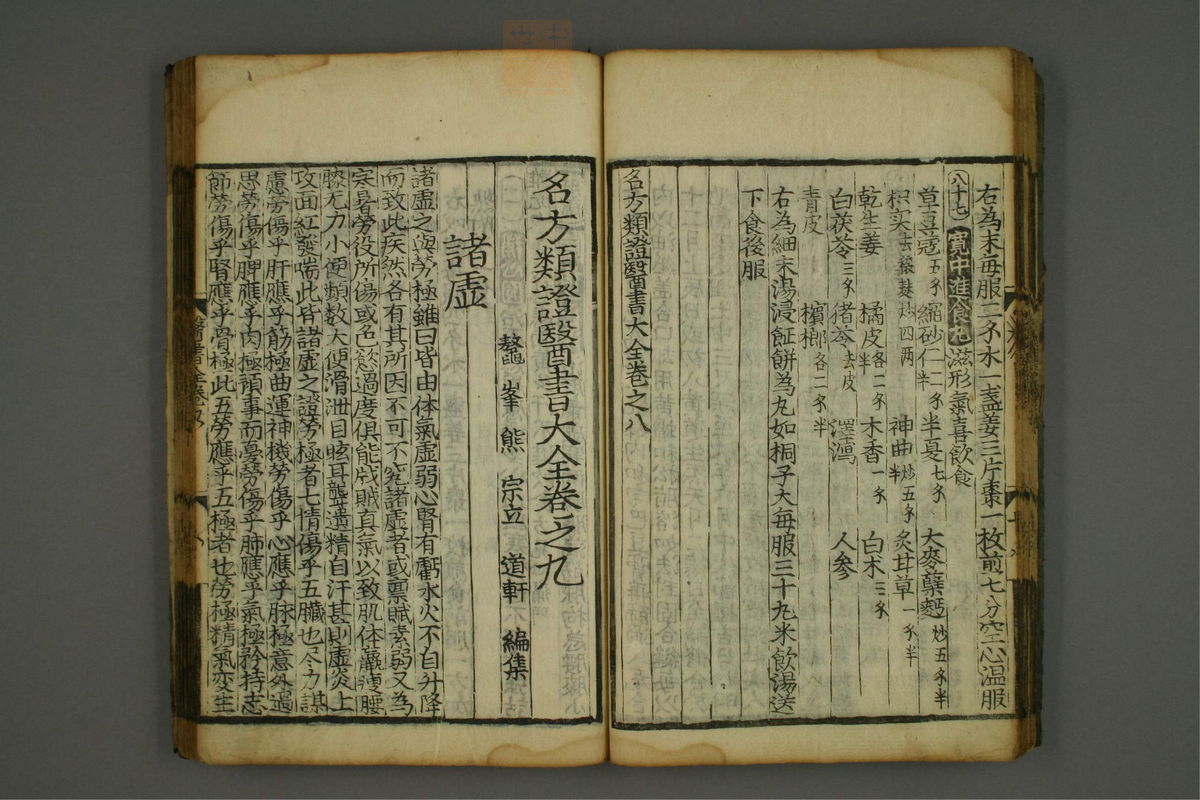 右為末每服二夕水一盞姜三片棗一枚前七分空心溫服
八十七 寬中進食丸 滋形氣喜飲食
草豆蔻五夕 縮砂仁一二夕半 半夏七夕 大麥蘗麪炒五夕半
枳实去穰麩炒四兩 神曲炒五夕半 炙甘草一夕半
乾生姜 橘皮各二夕半 木香一夕 白术三夕
白茯苓三夕 猪苓去皮 澤瀉 人參
青皮 檳榔各二夕半
右為細末湯浸飪餅為丸如桐子大每服三十丸米飲湯送
下食後服
名方類證醫書大全卷之八
名方類證醫書大全卷之九
鰲峯熊宗立道軒編集
諸虛
諸虛之與勞極雖曰皆由体氣虛弱心腎有虧水火不自升降
而致此疾然各有其所因不可不究諸虛者或稟賦素弱又為
寒暑勞役所傷或色慾過度俱能戕賊真氣以致肌体羸瘦腰
膝无力小便頻数大便滑泄目眩耳聾遺精自汗甚則虛炎上
攻面紅發喘此皆諸虛之證勞極者七情傷乎五臟也尽力謀
慮勞傷乎肝應乎筋極曲運神機勞傷乎心應乎脉極意外過
思勞傷乎脾應乎肉極預事而憂勞傷乎肺應乎氣極矜持志
節勞傷乎腎應乎骨極此五勞應乎五極者也勞極精氣变生